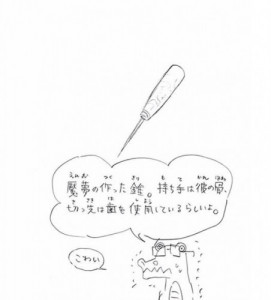 魘夢の作った錐。持ち手は彼の骨、
切っ先は歯を使用しているらしいよ。
こわい